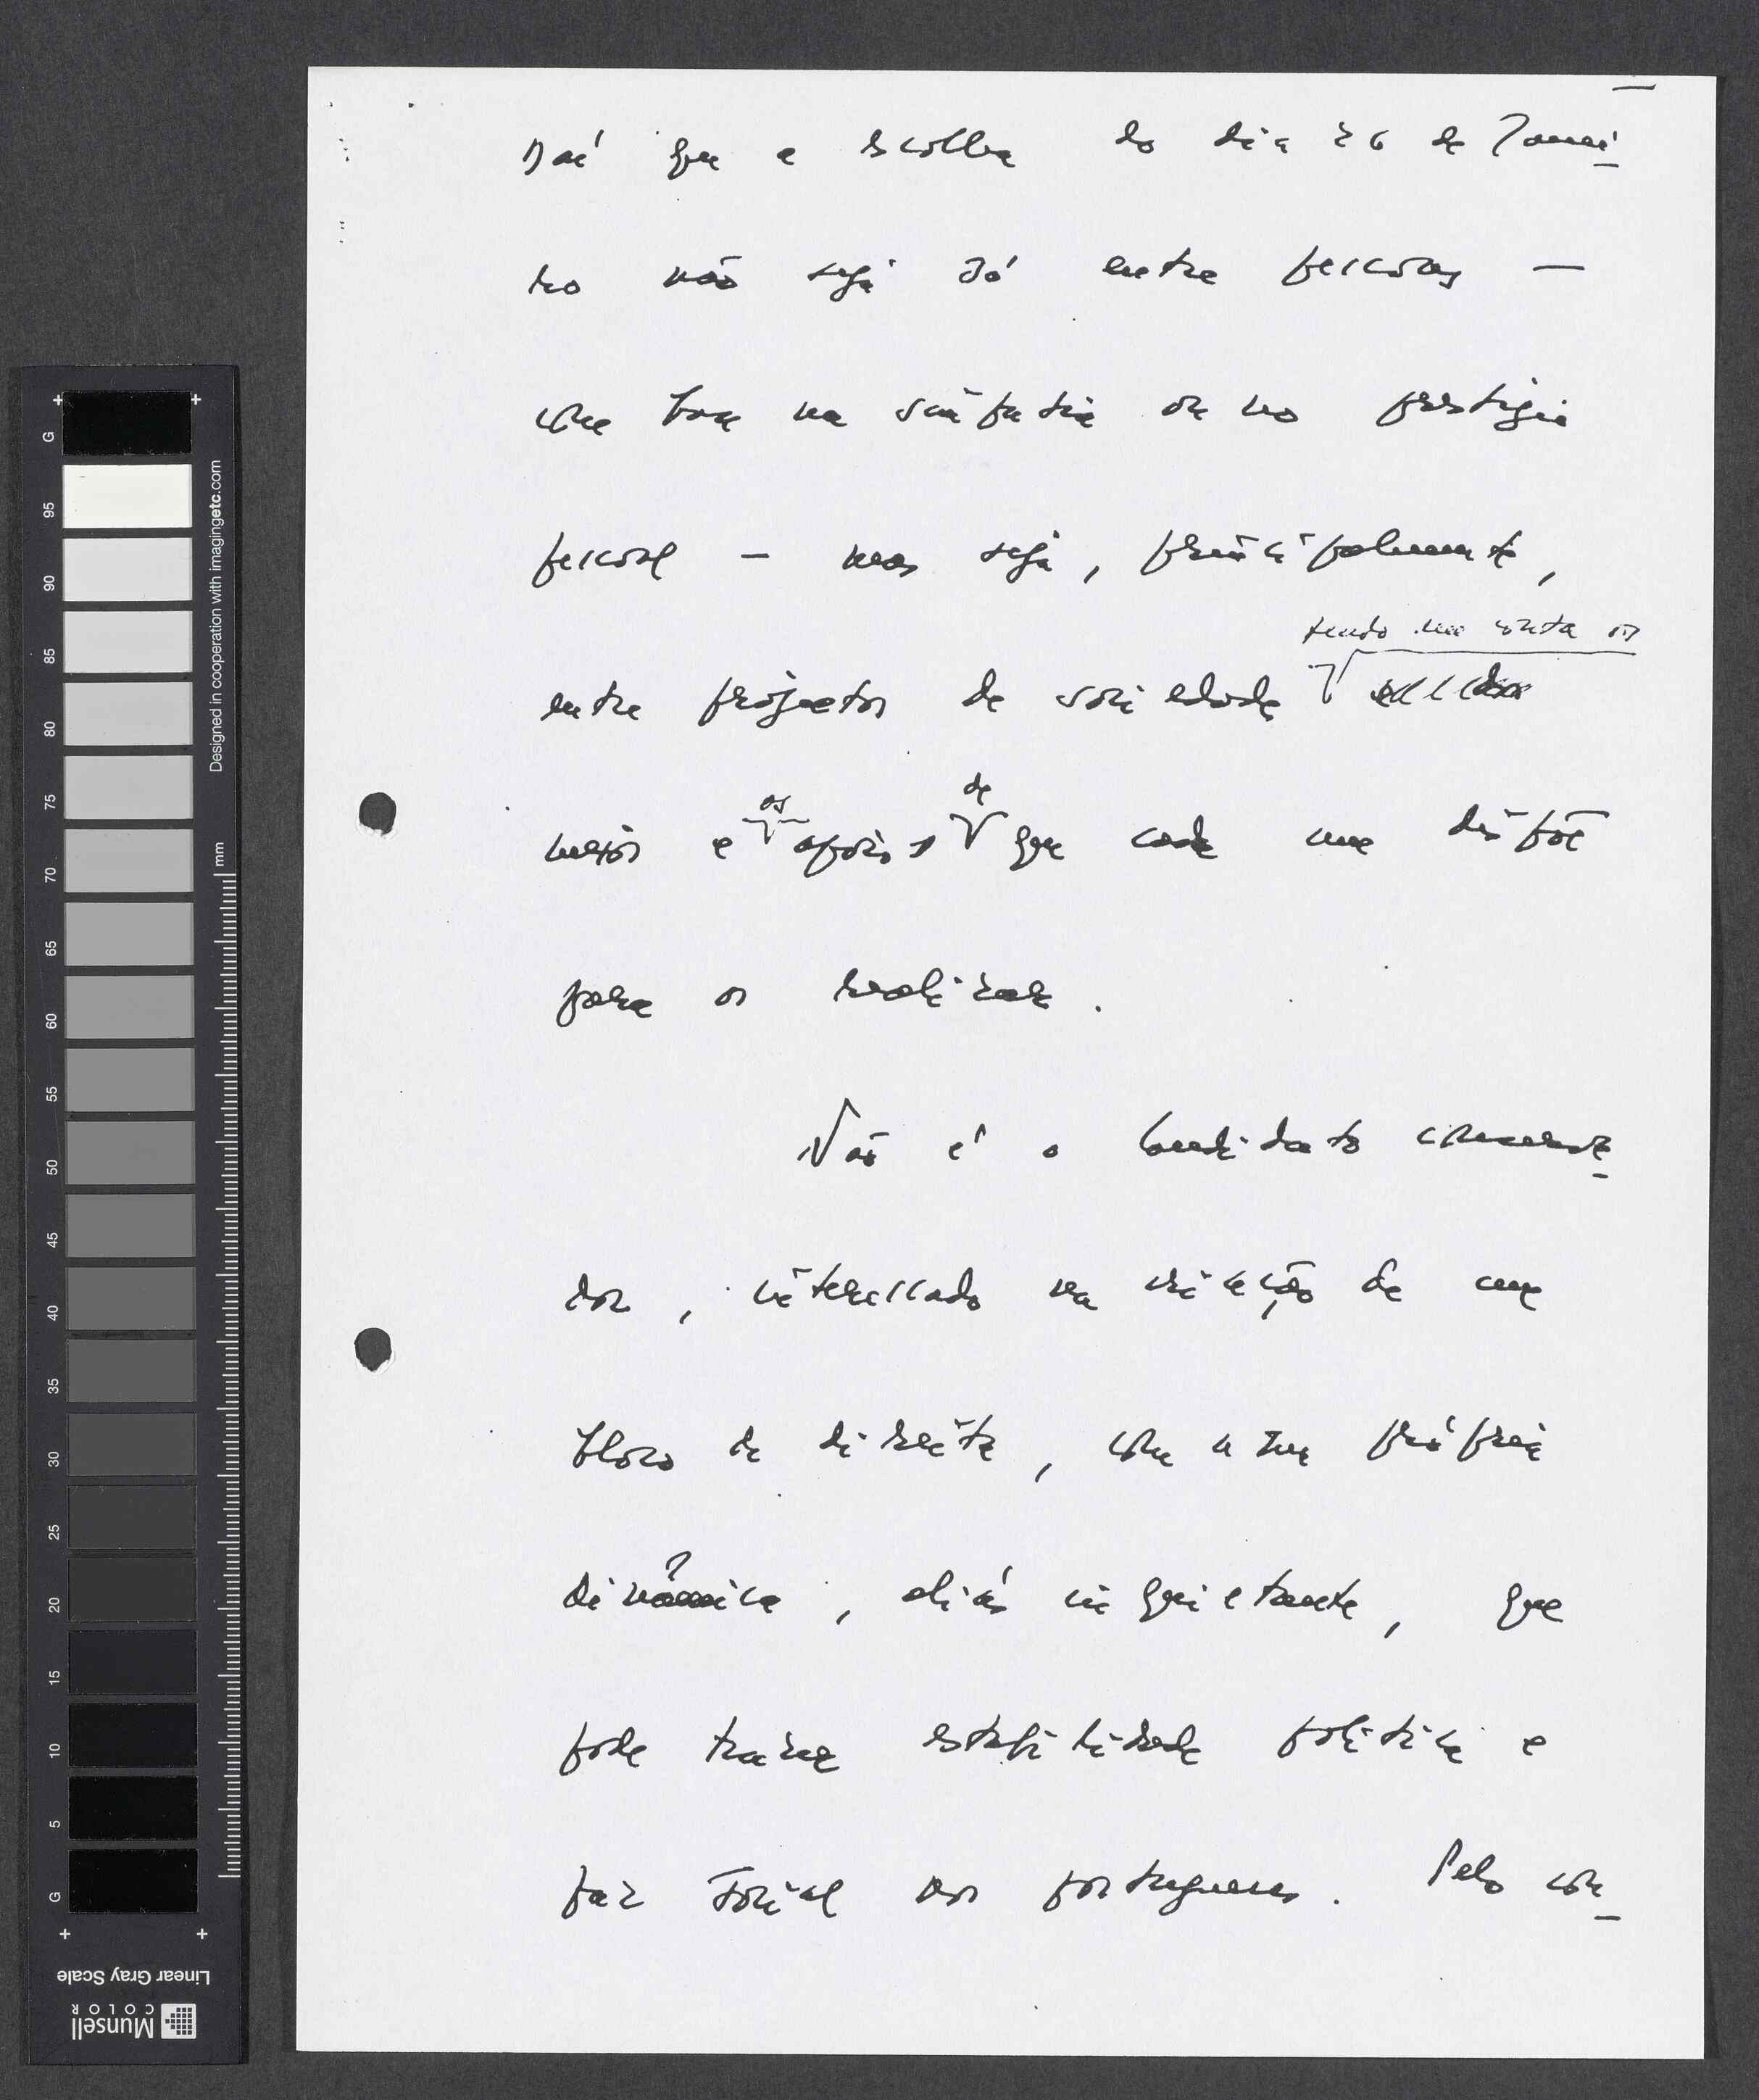 Daí que a escolha do dia 26 de Janei-
ro não seja só entre pessoas —
com base na simpatia ou no prestígio
pessoal — mas seja, principalmente,
tendo em conta os
entre projectos de sociedade
os de
meios e apoios que cada um dispõe
para os realizar.
Não é o candidato conserva-
dor, interessado na criação de um
bloco de direita, com a sua própria
dinâmica, aliás inquietante, que
pode trazer estabilidade política e
paz social aos portugueses. Pelo con-
G
95
90
85
80
75
70
65
60
55
50
45
40
35
30
25
20
15
10
5
G
mm
Designed in cooperation with imagingetc.com
Linear Gray Scale
Munsell
COLOR